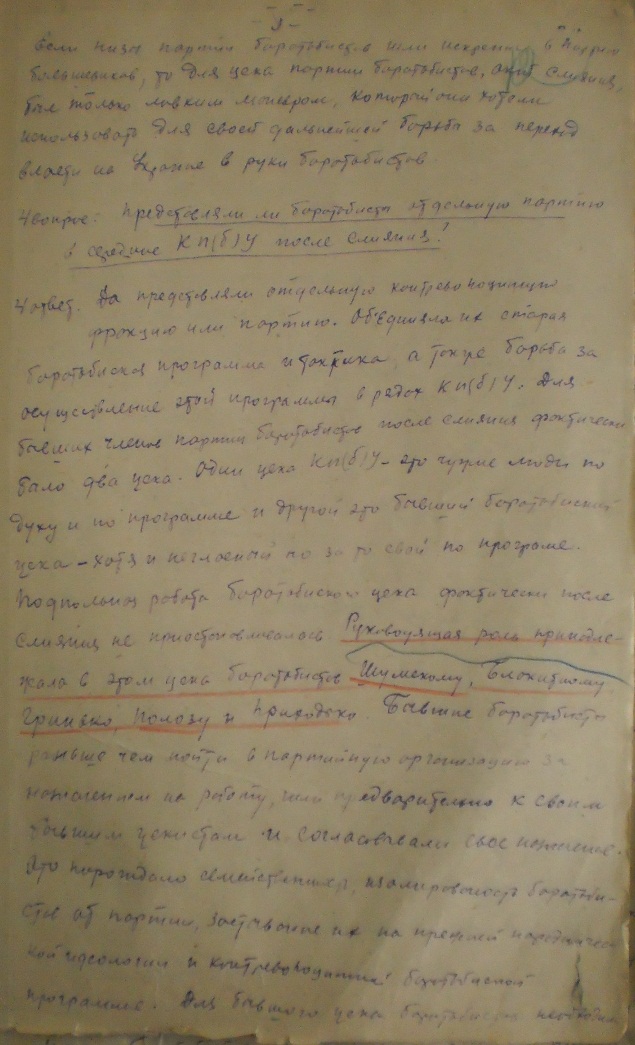 - 3 -
Если низы партии боротьбистов шли искренно в партию
большевиков, то для цека партии боротбистов, акт слияния,
был только ловким маневром, который они хотели
использовать для своей дальнейшей борьбы за переход
власти на Украине в руки боротбистов.
4 вопрос: Представляли ли боротбисты отдельную партию
в середине КП(б)У после слияния?
4 ответ. Да представляли отдельную контрреволюционную
фракцию или партию. Об'единяла их старая
боротбиская программа и тактика, а также борьба за
осуществление этой программы в рядах КП(б)У. Для
бывших членов партии боротбистов после слияния фактически
было два цека. Один цека КП(б)У - это чужие люди по
духу и по программе и другой это бывший боротбиский
цека - хотя и негласный но за то свой по програме.
Подпольная работа боротбиского цека фактически после
слияния не приостанавливалась. Руководящая роль принадле-
жала в этом цека боротбистов Шумскому, Блакитному
Гринько, Полозу и Приходько. Бывшие боротбисты
раньше чем пойти в партийную организацию за
назначением на работу, шли предварительно к своим
бывшим цекистам и согласовывали свое назначение.
Это порождало семейственность, изолированость боротби-
стов от партии, застывание их на прежней народничес-
кой идеологии и контрреволюционной боротбиской
программе. Для бывшего цека боротбистов необходимо